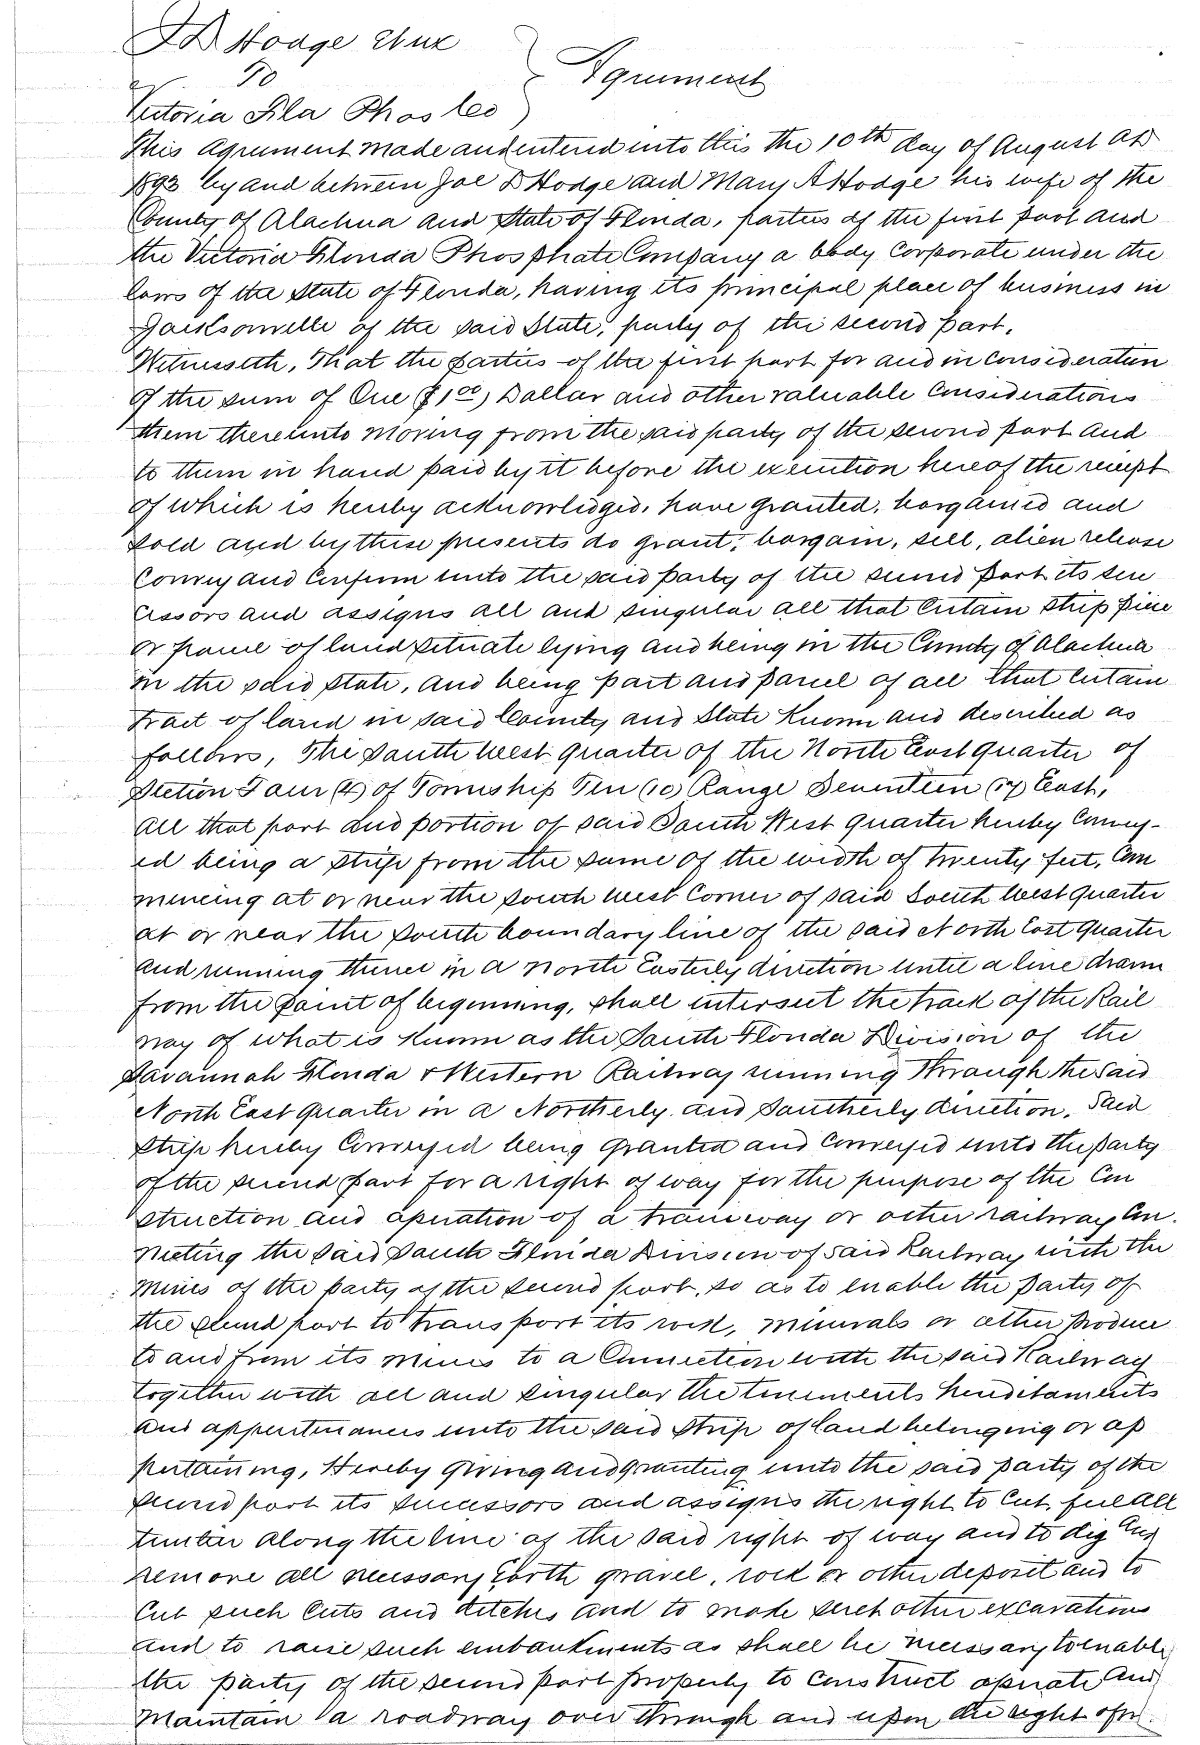 J D Hodge et ux
To
Agreement
Victoria Fla Phos Co
This agreement made and entered into this the 10th day of August AD
1893 by and between Joe D Hodge and Mary A Hodge his wife of the
County of Alachua and State of Florida, parties of the first part and
the Victoria Florida Phosphate Company a body corporate under the
laws of the State of Florida, having its principal place of business in
Jacksonville of the said State, party of the second part.
Witnesseth, That the parties of the first part for and in consideration
of the sum of One ($1 00) Dollar and other valuable considerations
them thereunto moving from the said party of the second part and
to them in hand paid by it before the execution hereof the receipt
of which is hereby acknowledged, have granted, bargained and
sold and by these presents do grant, bargain, sell, alien release
convey and confirm unto the said party of the second part its suc
cessors and assigns all and singular all that certain strip piece
or parcel of land situate lying and being in the County of Alachua
in the said state, and being part and parcel of all that certain
tract of land in said County and State Known and described as
follows, The South West quarter of the North East quarter of
Section Four (4) of Township Ten (10) Range Seventeen (17) East,
all that part and portion of said South West quarter hereby convey-
ed being a strip from the same of the width of twenty feet, Com
mencing at or near the south west corner of said South West quarter
at or near the south boundary line of the said North East quarter
and running thence in a North Easterly direction until a line drawn
from the point of beginning, shall intersect the track of the Rail
way of what is Known as the South Florida Division of the
Savannah Florida & Western Railway running through the said
North East quarter in a Northerly and Southerly direction. Said
strip hereby conveyed being granted and conveyed unto the party
of the second part for a right of way for the purpose of the Con
struction and operation of a tramway or other railway Con-
necting the said South Florida Division of said Railway with the
mines of the party of the second part, so as to enable the party of
the second part to transport its rock, minerals or other produce
to and from its mines to a Connection with the said Railway
together with all and singular the tenements hereditaments
and appurtenances unto the said strip of land belonging or ap
pertaining, Hereby giving and granting unto the said party of the
second part its successors and assigns the right to cut, fell all
timber along the line of the said right of way and to dig and
remove all necessary Earth gravel, rock or other deposit and to
cut such cuts and ditches and to make such other excavations
and to raise such embankments as shall be necessary to enable
the party of the second part properly to construct operate and
maintain a roadway over through and upon the right of